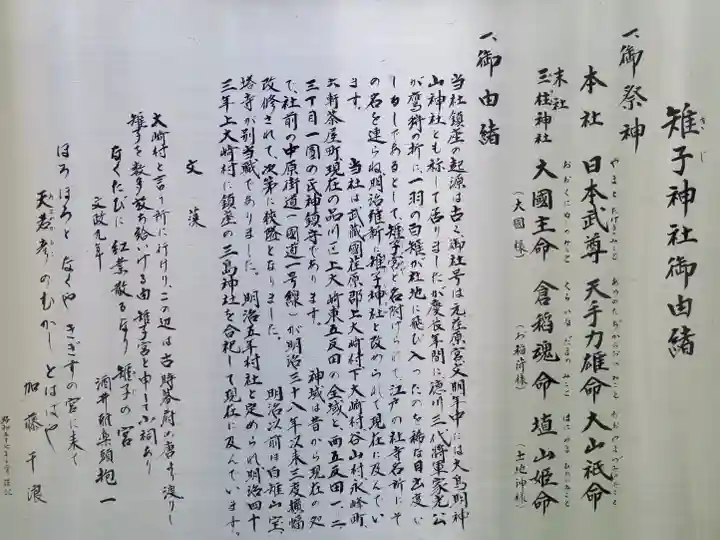 雉子神社御由緒
一、御祭神
本社 日本武尊 天手力雄命 大山祇命
末社 三柱神社 大國主命 倉稲魂命 埴山姫命
(大国様) (お稲荷様) (土地神様)
一、御由緒
当社鎮座の起源は古く御社号は元荏原宮文明年中には大鳥明神
山神社とも称して居りましたが慶長年間に徳川三代将軍家光公
が鷹狩の折に、一羽の白雉が社地に飛び入ったのを稀な目出度い
しるしであるとして、雉子宮と名附けられて、江戸の社寺名所にそ
の名を連らね明治維新に雉子神社と改められて現在に及んでい
ます。 当社は武蔵國荏原郡上大崎村下大崎村谷山村永峰町
六軒茶屋町現在の品川区上大崎東五反田の全域と西五反田一、二、
三丁目一圓の氏神鎮守であります。 神域は昔から現在の処
で、社前の中原街道(国道一号線)が明治三十八年以来三度擴幅
改修されて、次第に狭隘となりました。 明治以前は白雉山宝
塔寺が別当職でありました。 明治五年村社と定められ明治四十
三年上大崎村に鎮座の三島神社を合祀して現在に及んでいます。
文藻
大崎村と言う所に行けり、この辺は古時
雉子を数多放ち給いける由雉子宮と申して小祠あり
なくたびに 紅葉散るなり 雉子の宮
文政九年 酒井雅楽頭抱一
ほろほろと なくや きぎすの宮に来て
天若彦の むかし とはばや
加藤千浪